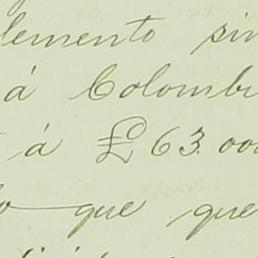 lemento sin
á Colombi
á £63.000
que que